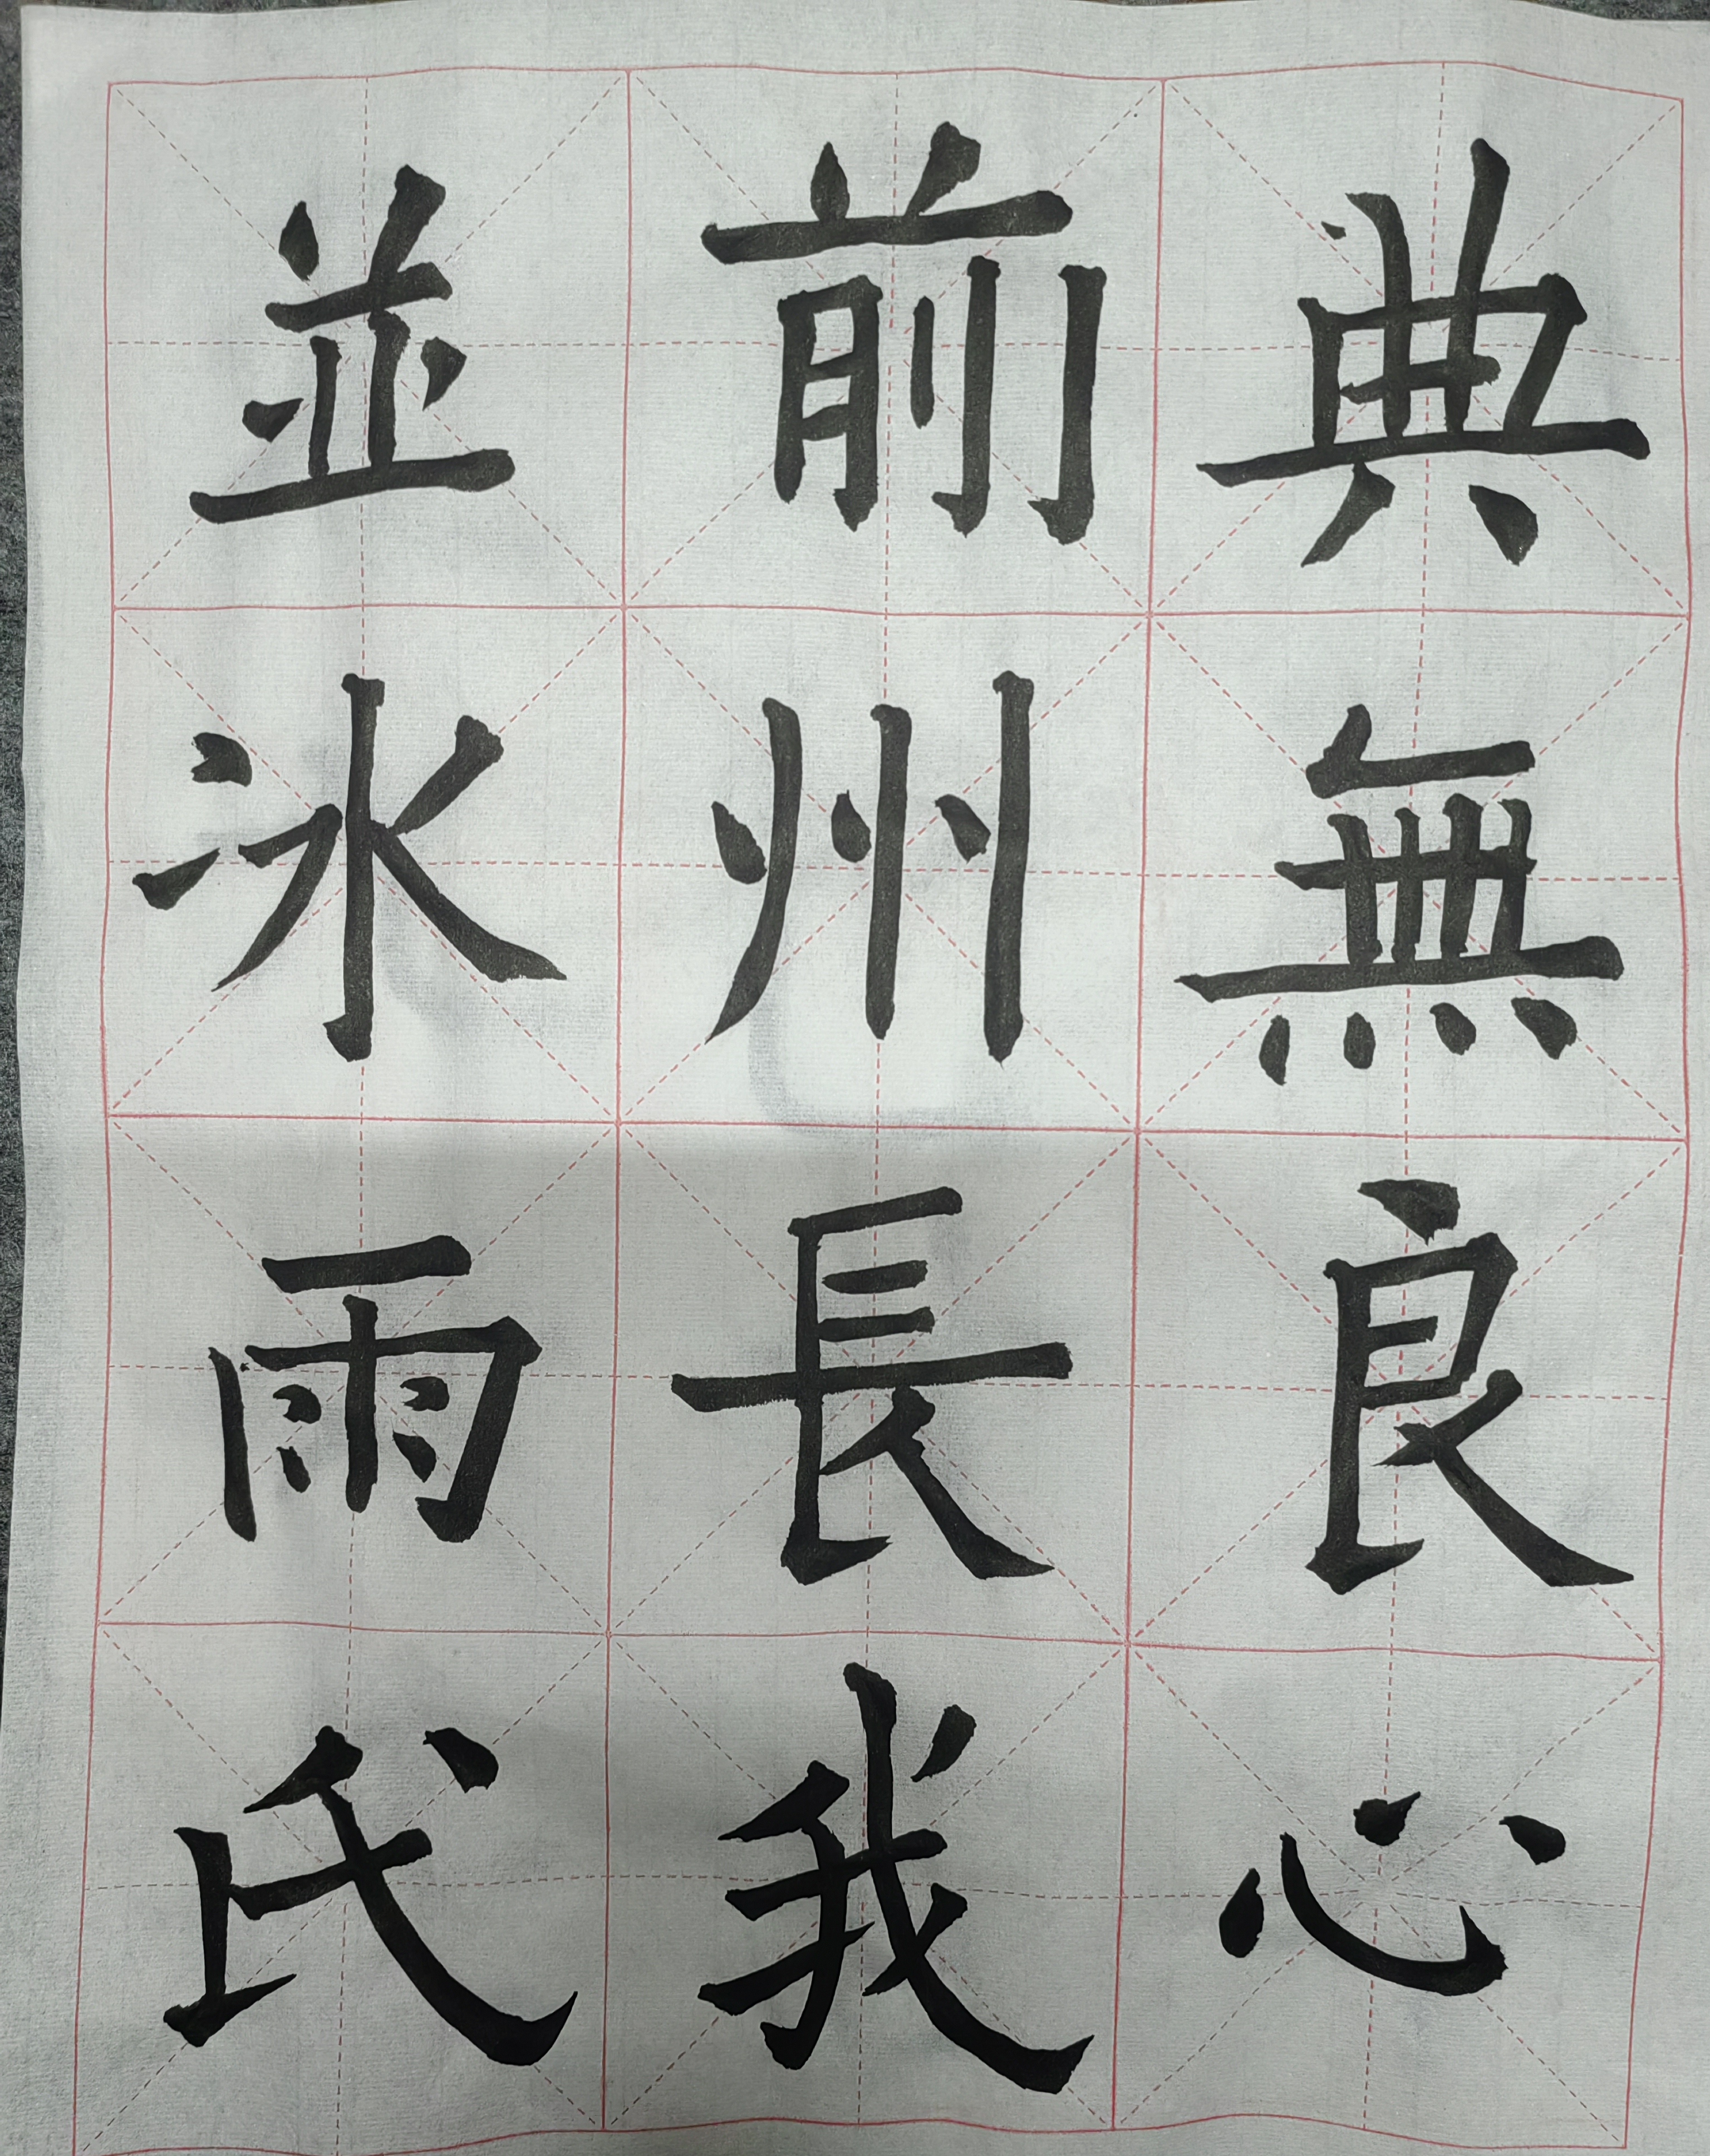 典無良心
前州長我
並冰雨氏